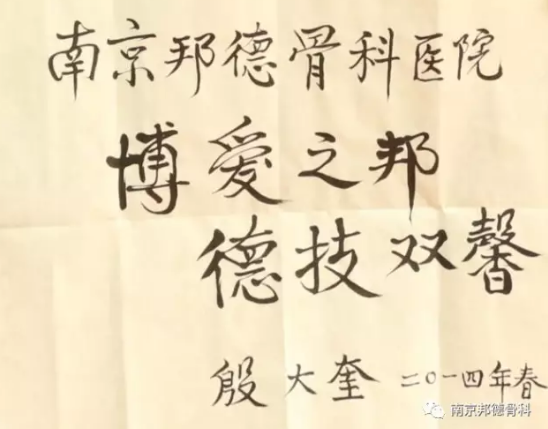 南京邦德骨科医院
博爱之邦
德技双馨
殷大奎 二〇一四年春
南京邦德骨科